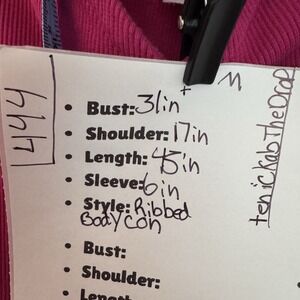 M
444
Bust: 31in +
Shoulder: 17in
Length: 45in
Sleeve: 6in
Style: Ribbed
Bodycon
Bust:
Shoulder:
Length:
tenickabTheDrop